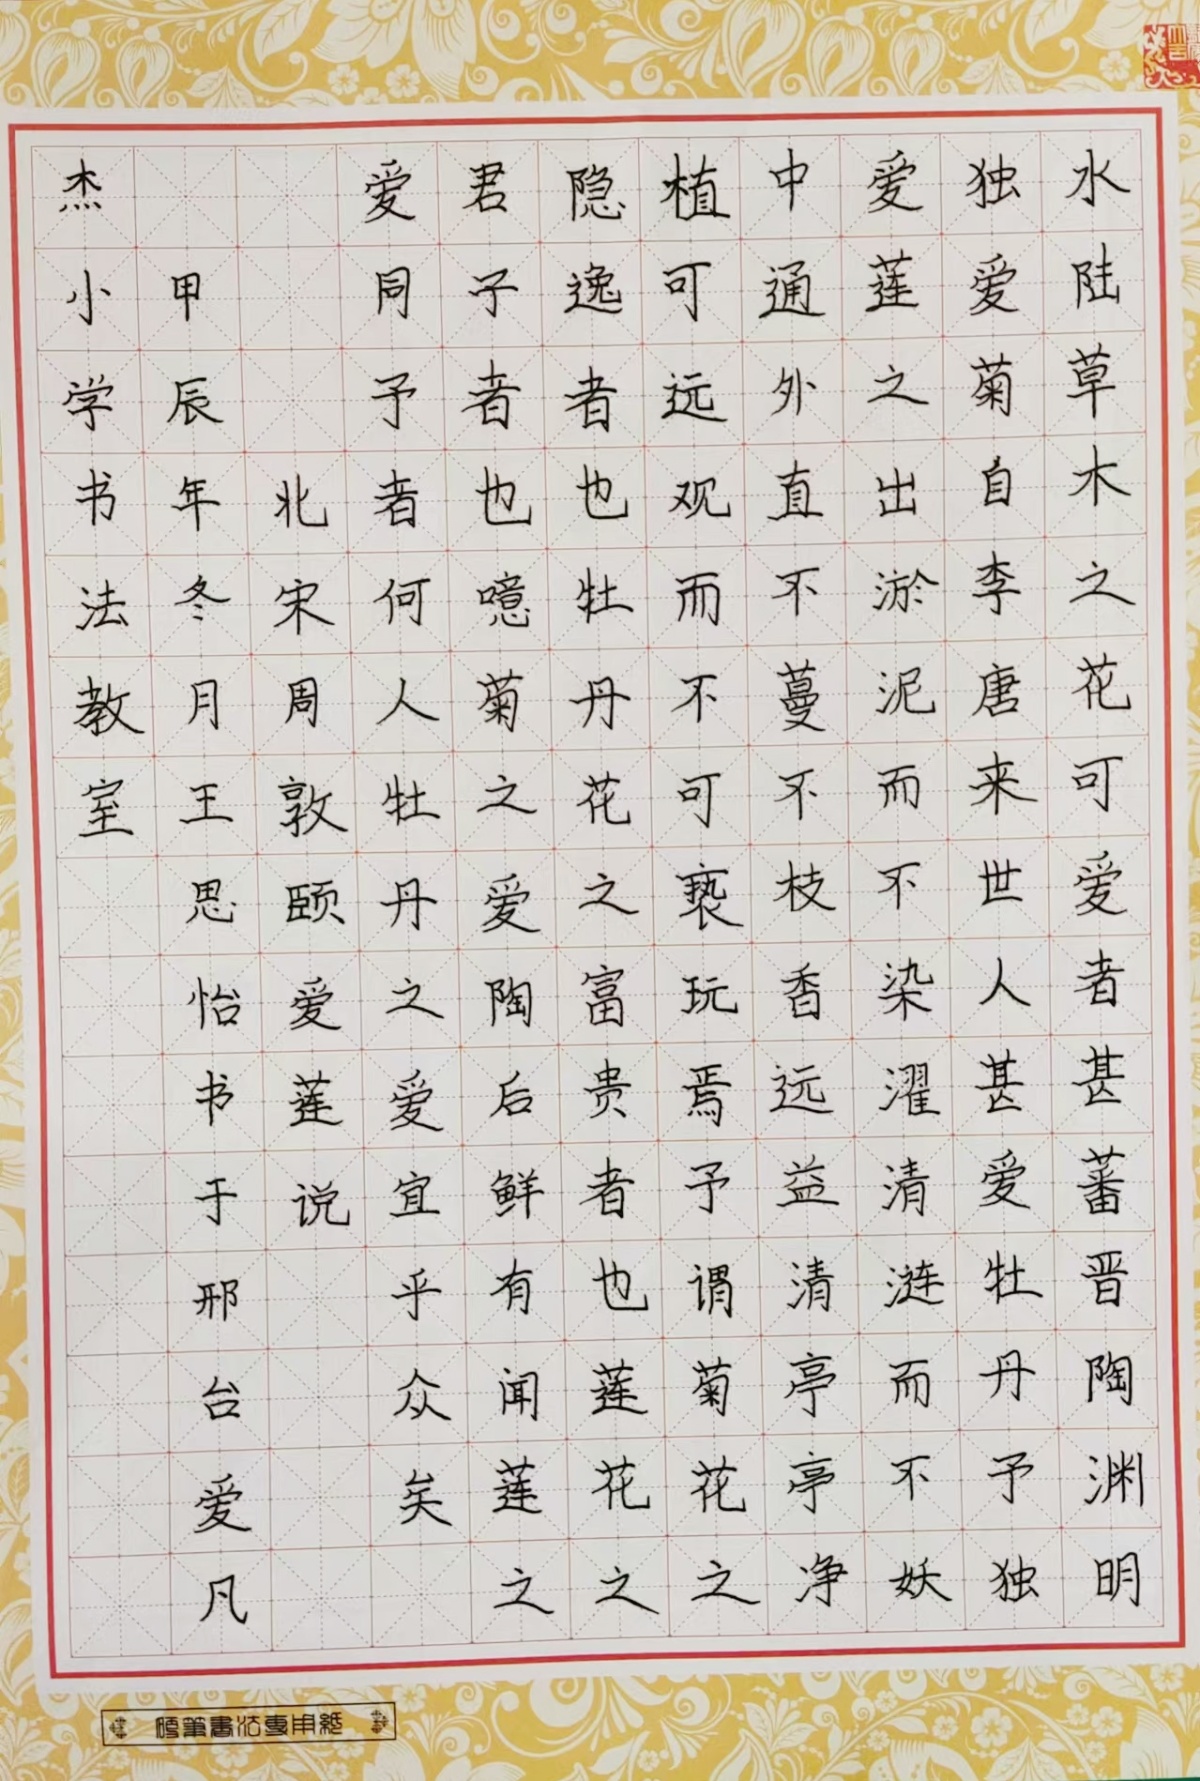 水陆草木之花可爱者甚蕃晋陶渊明
独爱菊自李唐来世人甚爱牡丹予独
爱莲之出淤泥而不染濯清涟而不妖
中通外直不蔓不枝香远益清亭亭净
植可远观而不可亵玩焉予谓菊花之
隐逸者也牡丹花之富贵者也莲花之
君子者也噫菊之爱陶后鲜有闻莲之
爱同予者何人牡丹之爱宜乎众矣
北宋周敦颐爱莲说
甲辰年冬月王思怡书于邢台爱凡
杰小学书法教室
硬筆書法專用紙